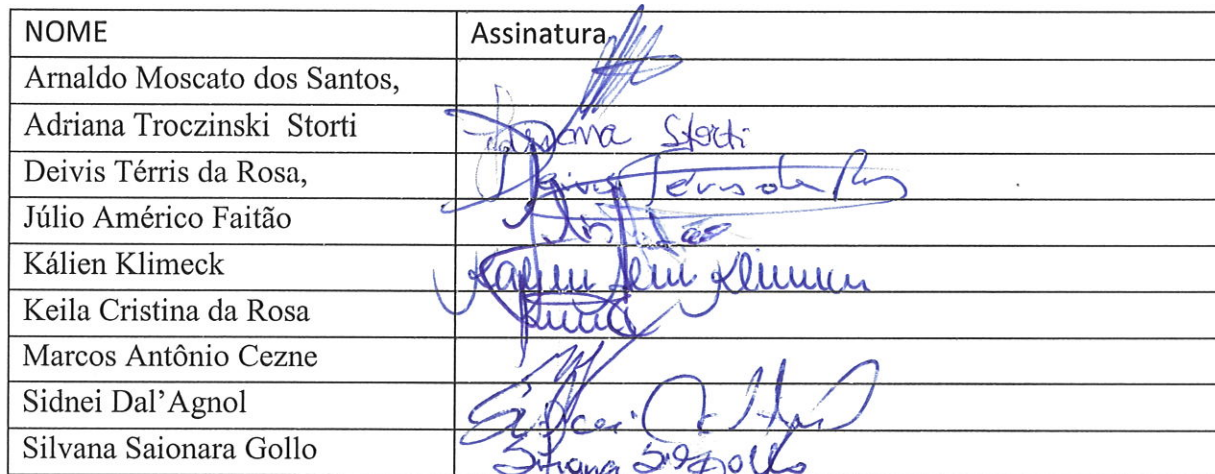 NOME Assinatura
Arnaldo Moscato dos Santos,
Adriana Troczinski Storti Storti
Deivis Térris da Rosa, Deivis Térris da
Júlio Américo Faitão
Kálien Klimeck
Keila Cristina da Rosa
Marcos Antônio Cezne
Sidnei Dal’Agnol
Silvana Saionara Gollo Silvana S. Gollo